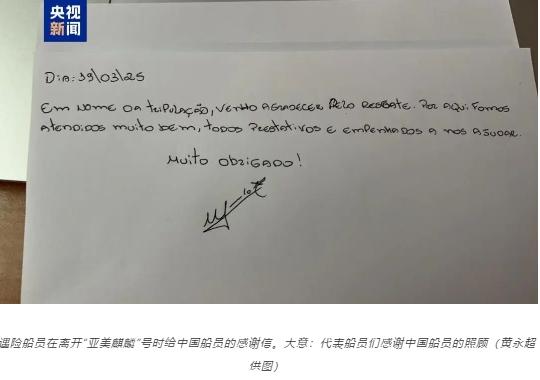 央视
新闻
Dia: 19/03/25
Em nome da tripulação, venho agradecer pelo resgate. Por aqui fomos
atendidos muito bem, todos prestativos e empenhados a nos ajudar.
Muito obrigado!
遇险船员在离开“亚美麒麟”号时给中国船员的感谢信。大意：代表船员们感谢中国船员的照顾（黄永超
供图）